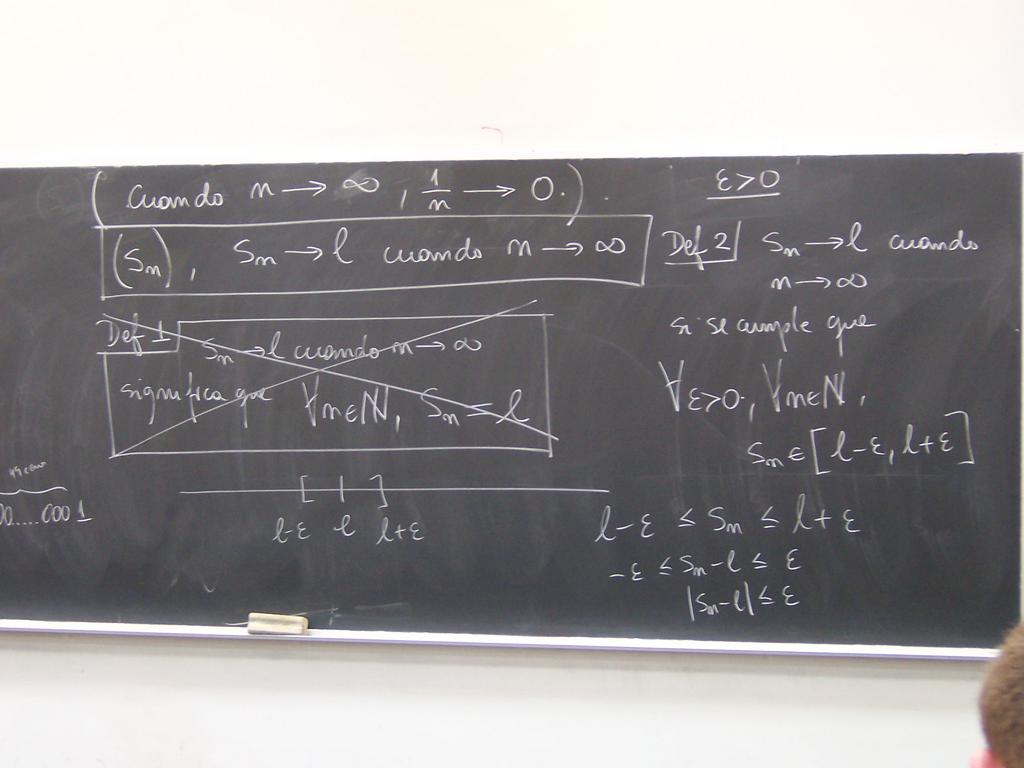 (cuando n → ∞, 1/n → 0.).
(Sn), Sn → l cuando n → ∞
Def 1 Sn → l cuando n → ∞
significa que ∀n∈ℕ, Sn = l
[ | ]
l-ε l l+ε
00....0001
ε>0
Def 2 Sn → l cuando
n → ∞
si se cumple que
∀ε>0, ∀n∈ℕ,
Sn ∈ [l-ε, l+ε]
l-ε ≤ Sn ≤ l+ε
-ε ≤ Sn-l ≤ ε
|Sn-l| ≤ ε